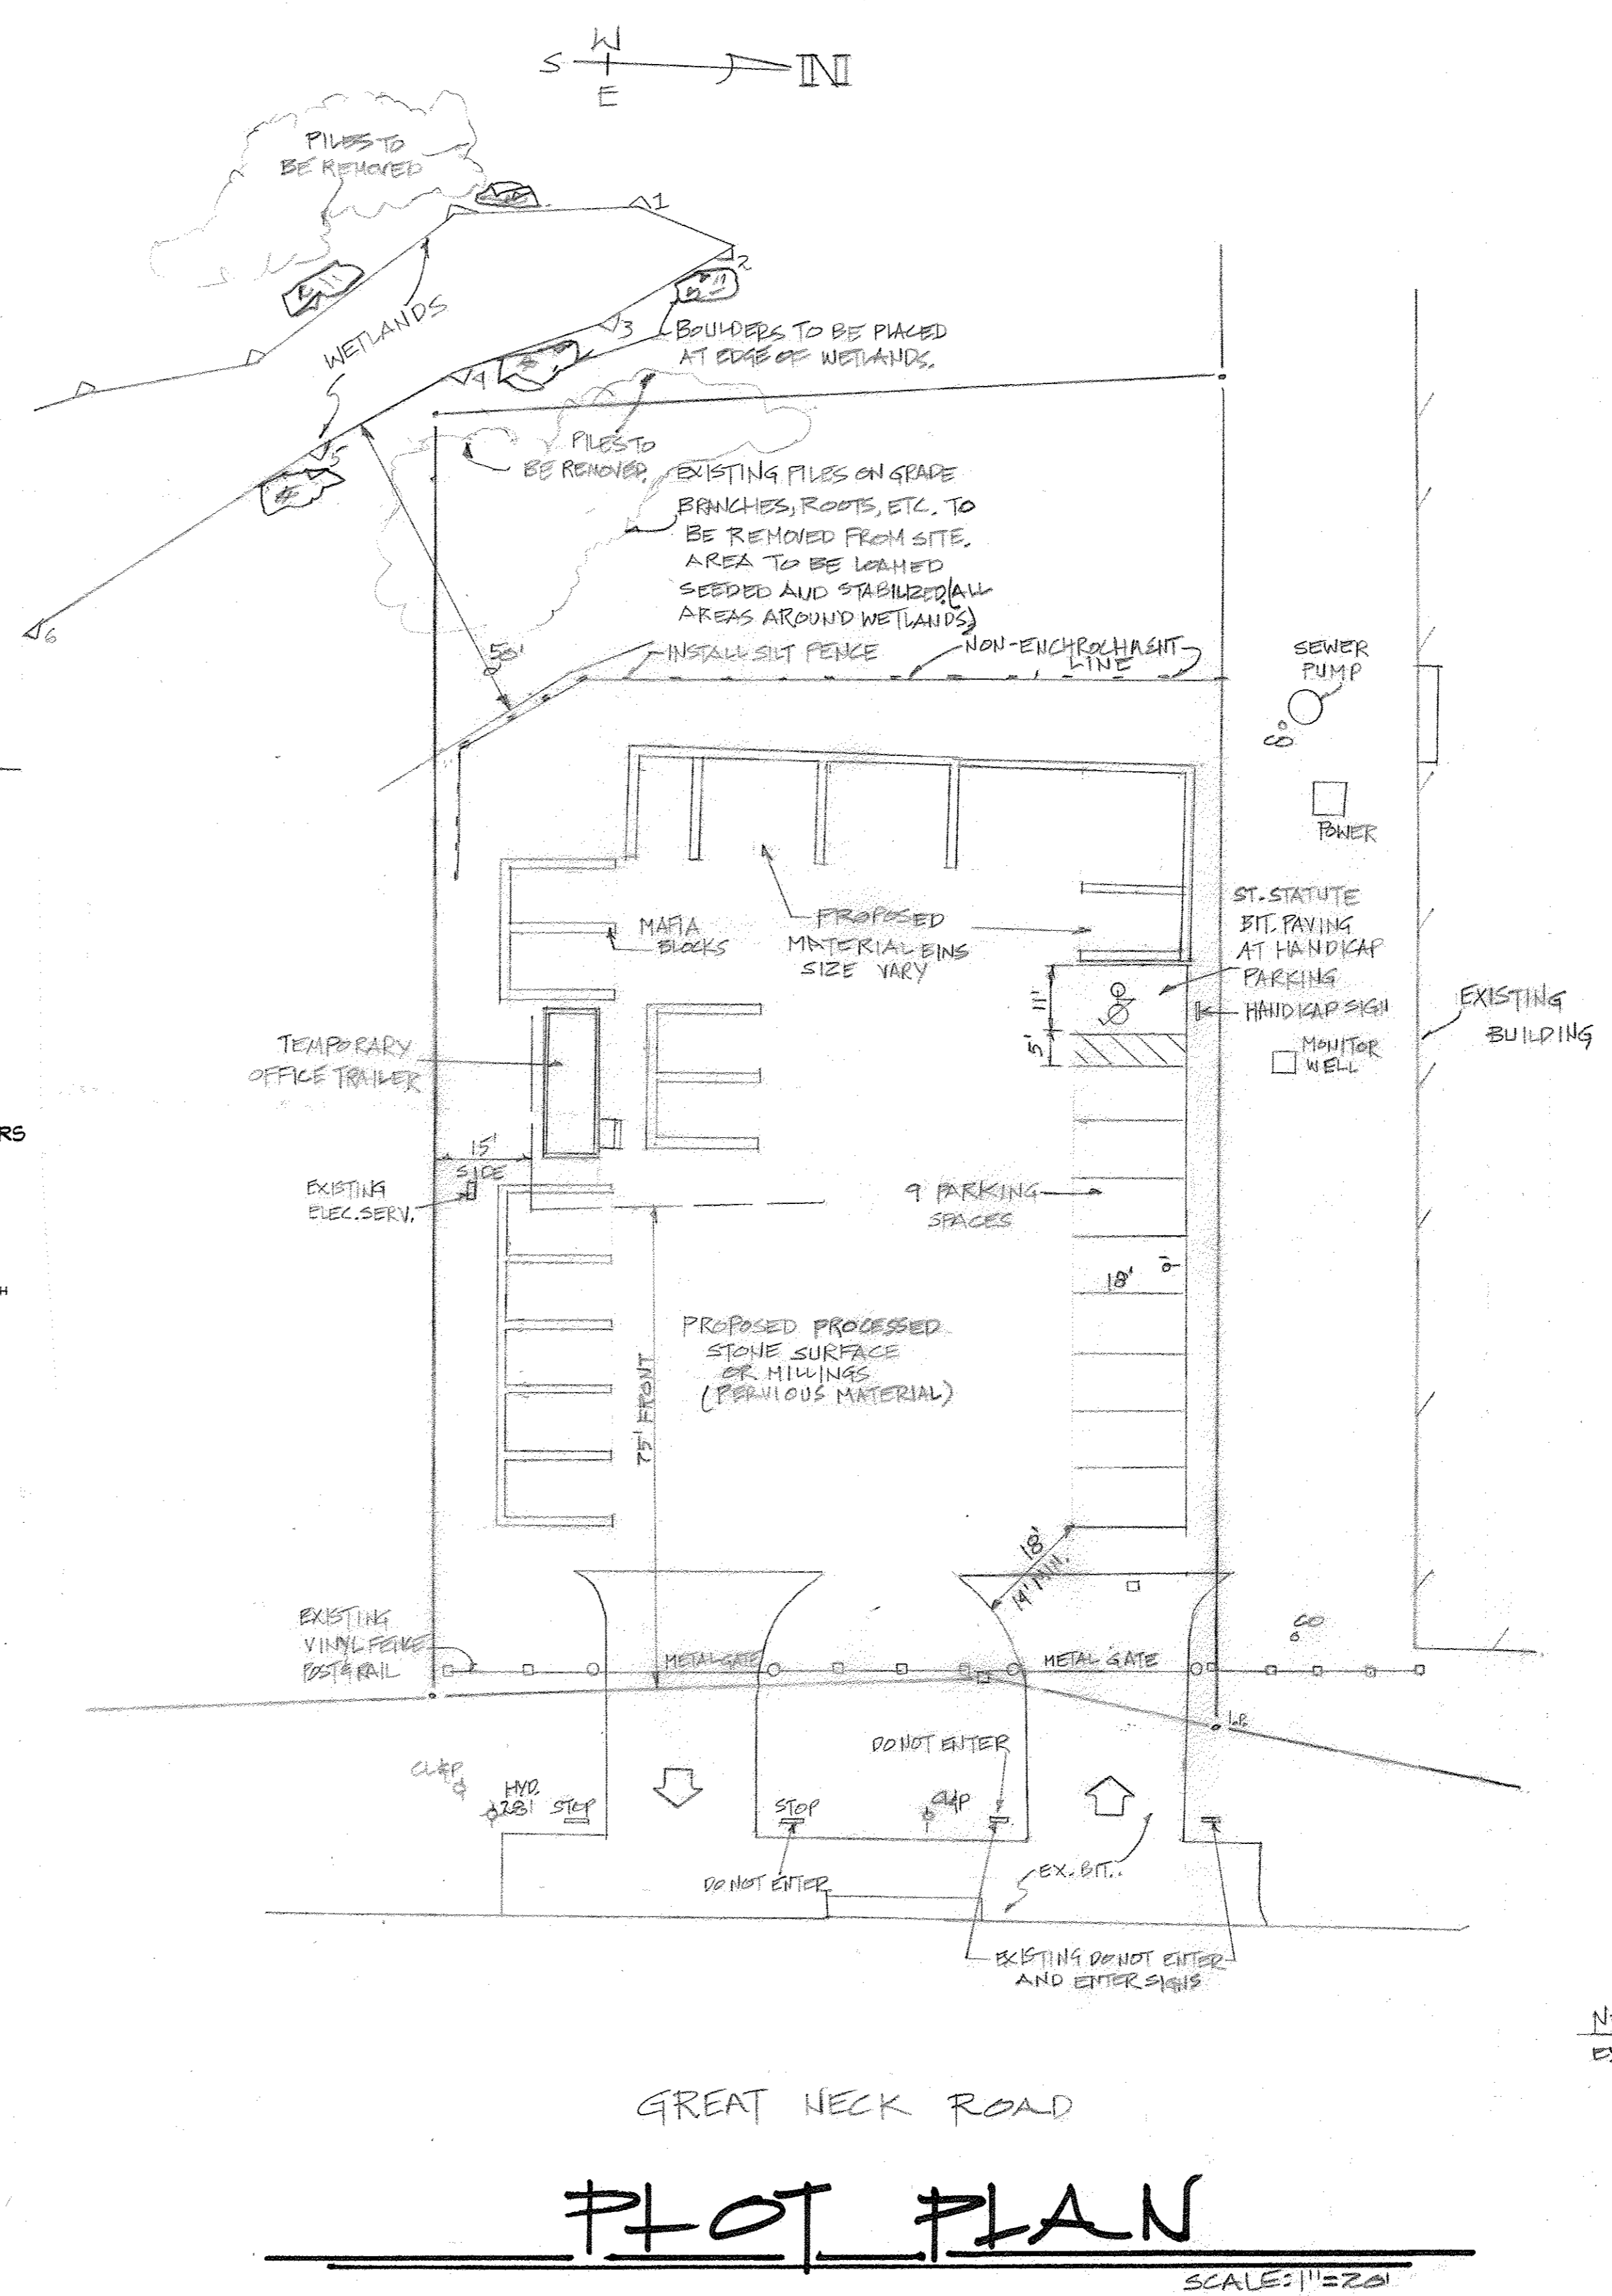 W
S
N
E
PILES TO
BE REMOVED
1
2
3
4
5
6
WETLANDS
BOULDERS TO BE PLACED
AT EDGE OF WETLANDS.
PILES TO
BE REMOVED.
EXISTING PILES ON GRADE
BRANCHES, ROOTS, ETC. TO
BE REMOVED FROM SITE.
AREA TO BE LOAMED
SEEDED AND STABILIZED.(ALL
AREAS AROUND WETLANDS)
50'
INSTALL SILT FENCE
NON-ENCHROCHMENT
LINE
SEWER
PUMP
CO
POWER
MAFIA
BLOCKS
PROPOSED
MATERIAL BINS
SIZE VARY
ST. STATUTE
BIT. PAVING
AT HANDICAP
PARKING
HANDICAP SIGN
11'
5'
EXISTING
BUILDING
MONITOR
WELL
TEMPORARY
OFFICE TRAILER
RS
15'
SIDE
EXISTING
ELEC. SERV.
9 PARKING
SPACES
18'
9'
H
PROPOSED PROCESSED
STONE SURFACE
OR MILLINGS
(PERVIOUS MATERIAL)
75' FRONT
18'
14' MIN.
EXISTING
VINYL FENCE
POST & RAIL
METAL GATE
METAL GATE
CO
I.P.
DO NOT ENTER
CL&P
HYD.
281
STOP
STOP
CL&P
DO NOT ENTER
EX. BIT.
EXISTING DO NOT ENTER
AND ENTER SIGNS
GREAT NECK ROAD
PLOT PLAN
SCALE: 1"=20'